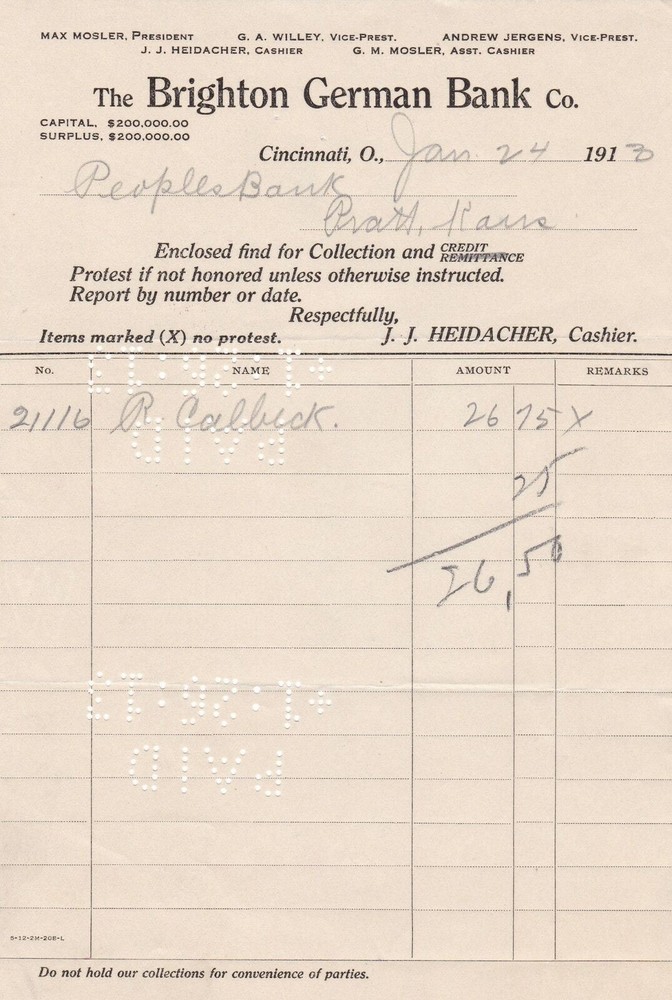 MAX MOSLER, PRESIDENT G. A. WILLEY, VICE-PREST. ANDREW JERGENS, VICE-PREST.
J. J. HEIDACHER, CASHIER G. M. MOSLER, ASST. CASHIER
The Brighton German Bank Co.
CAPITAL, $200,000.00
SURPLUS, $200,000.00
Cincinnati, O., Jan. 24 1913
Peoples Bank
Pratt, Kans
Enclosed find for Collection and CREDIT REMITTANCE
Protest if not honored unless otherwise instructed.
Report by number or date.
Respectfully,
Items marked (X) no protest. J. J. HEIDACHER, Cashier.
No. NAME AMOUNT REMARKS
21116 R. Calbeck. 26 75 X
PAID
25
26,50
PAID
5-12-2M-208-L
Do not hold our collections for convenience of parties.